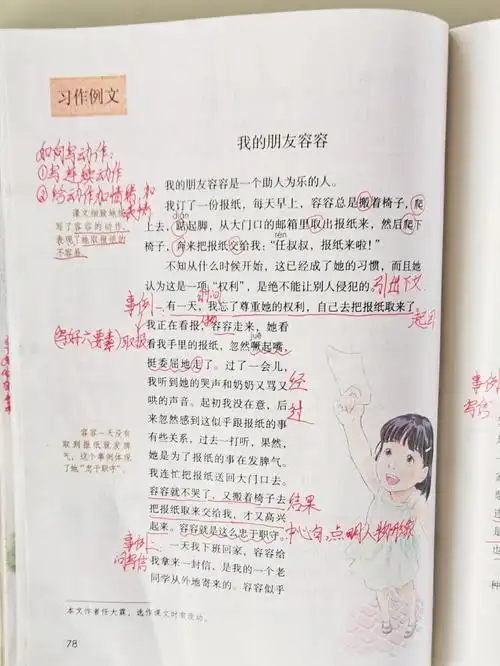 习作例文
我的朋友容容
如何写动作:
①写连续动作
②给动作加情绪和表情
课文细致地描
写了容容的动作,
表现了她取报纸的
不容易。
我的朋友容容是一个助人为乐的人。
我订了一份报纸,每天早上,容容总是搬着椅子,爬
diān
上去,踮起脚,从大门口的邮箱里取出报纸来,然后爬下
rén
椅子,奔来把报纸交给我:“任叔叔,报纸来啦!”
不知从什么时候开始,这已经成了她的习惯,而且她
认为这是一项“权利”,是绝不能让别人侵犯的。引出下文
事例一 时间
有一天,我忘了尊重她的权利,自己去把报纸取来了。
起因
(写好六要素)取报
我正在看报,容容走来,她看
juē
看我手里的报纸,忽然噘起嘴,
挺委屈地走了。过了一会儿,
我听到她的哭声和奶奶又骂又
哄的声音。起初我没在意,后
来忽然感到这似乎跟报纸的事
有些关系,过去一打听,果然,
她是为了报纸的事在发脾气。
我连忙把报纸送回大门口去。
经过
容容一天没有
取到报纸就发脾
气,这个事例体现
了她“忠于职守”。
容容就不哭了,又搬着椅子去
结果
把报纸取来交给我,才又高兴
起来。容容就是这么忠于职守。
中心句,点明人物形象
事例二
问寄信
一天我下班回家,容容给
我拿来一封信,是我的一个老
同学从外地寄来的。容容似乎
本文作者任大霖,选作课文时有改动。
78